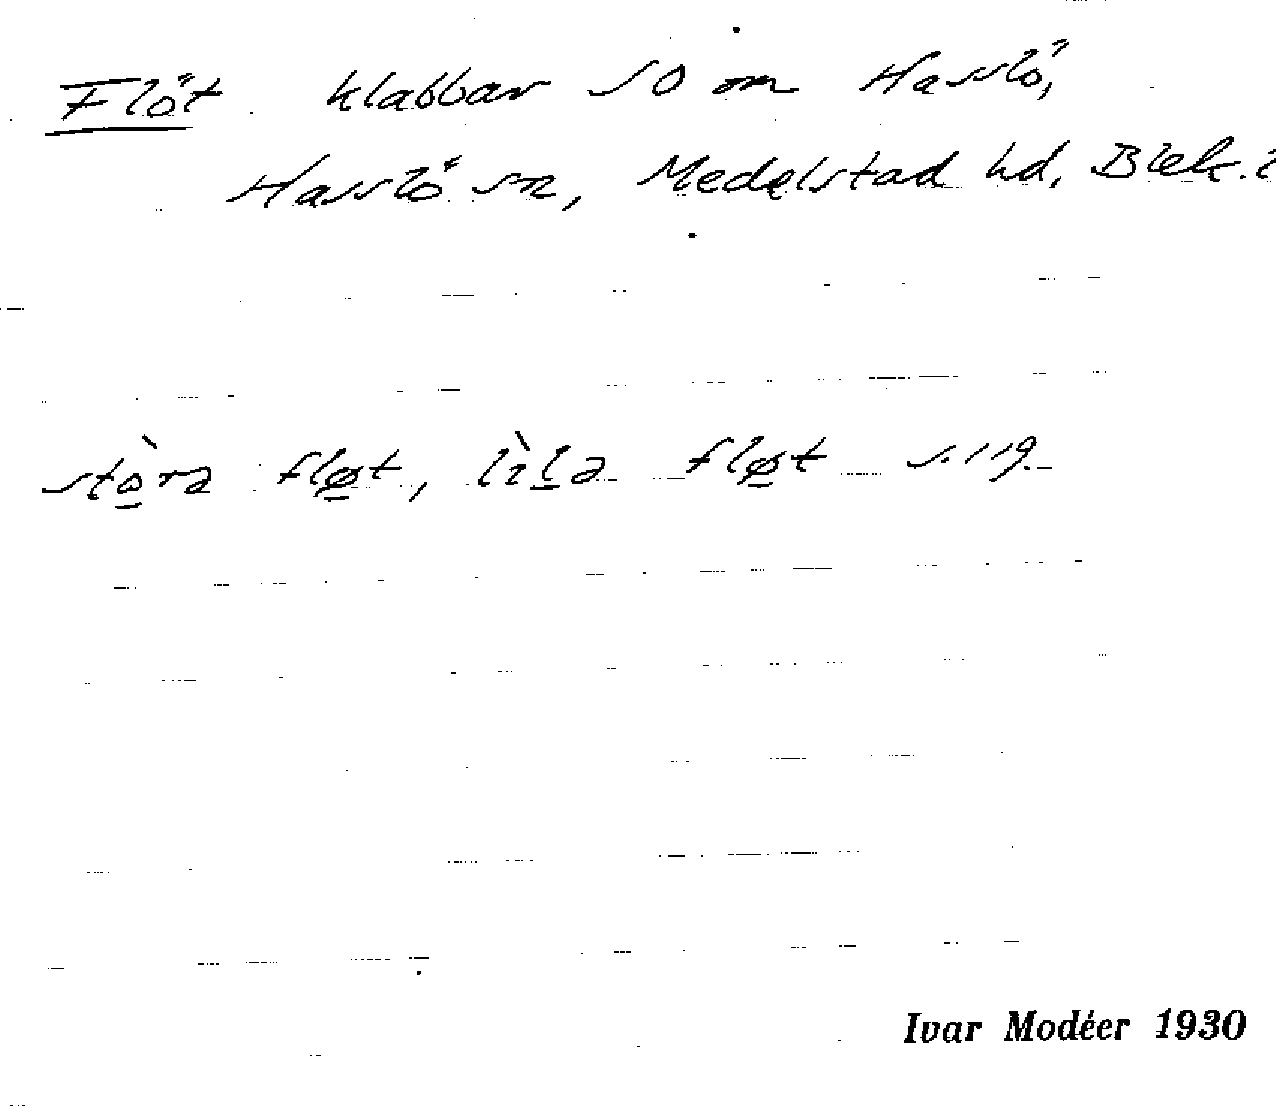 Flöt klabbar SO om Hasslö,
Hasslö sn, Medelstad hd, Blek.
stòra fløt, lìla fløt s. 119.
Ivar Modéer 1930